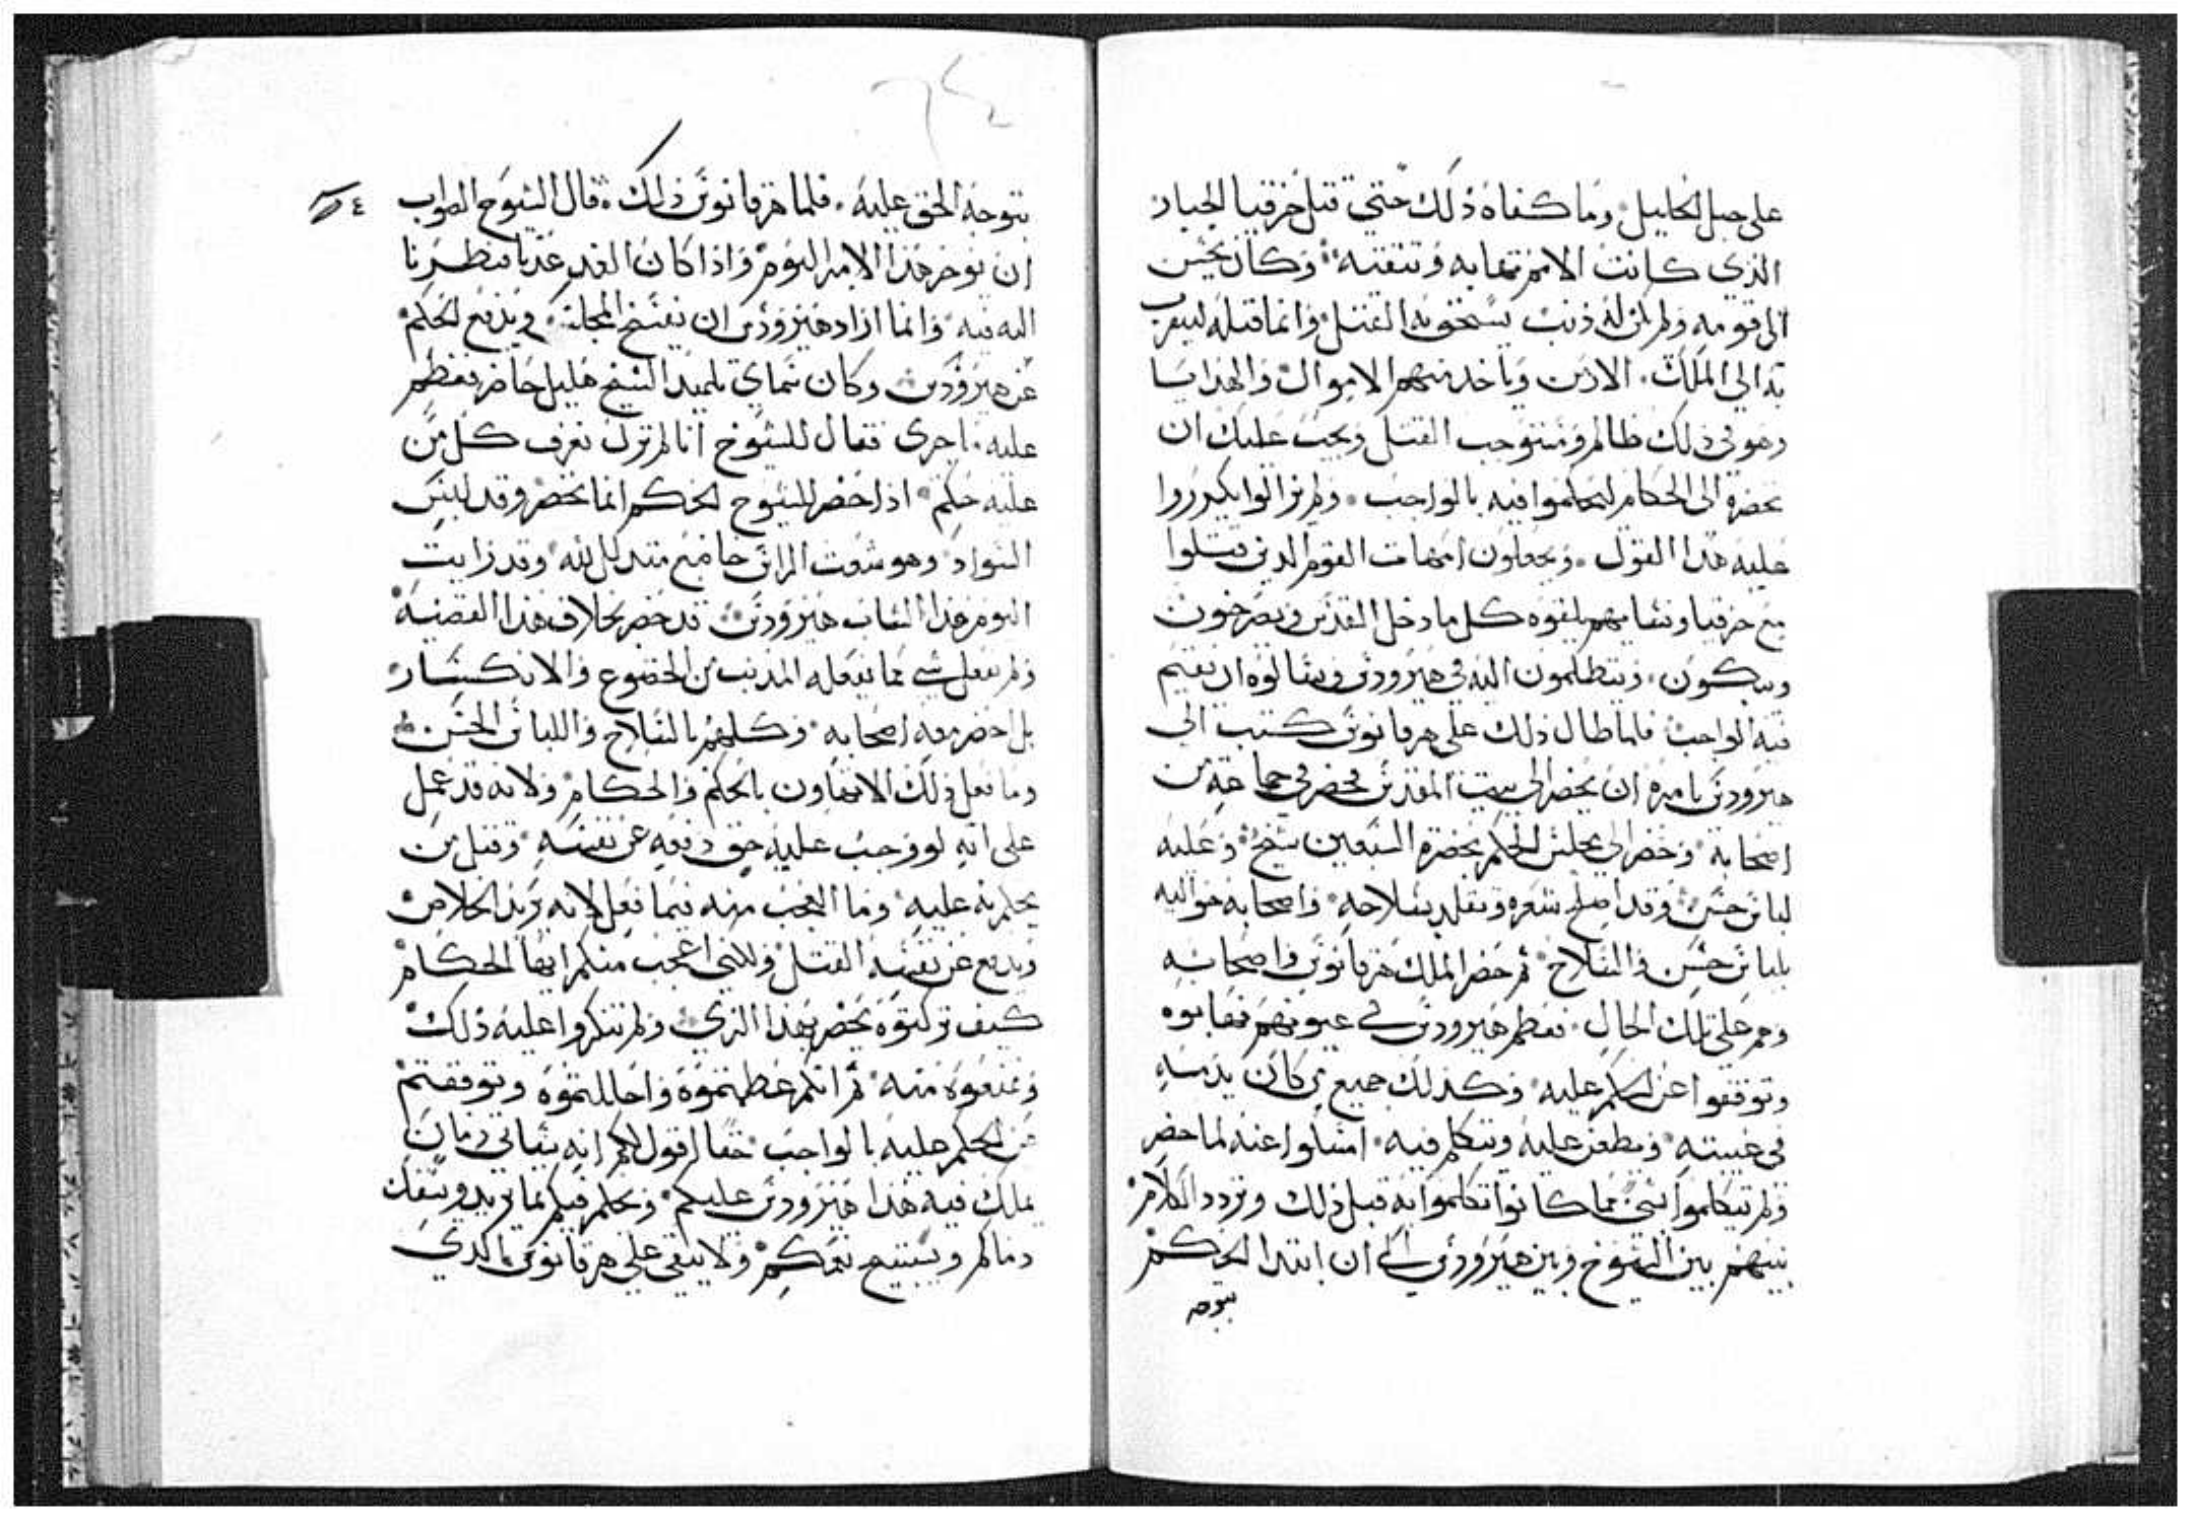 على جبل الخليل وما كفاه ذلك حتي قتل حزقيا الجبار
الذي كانت الامم تهابه وتتقيه وكان يحسن
الى قومه ولم يكن له ذنب يستحق به القتل وانما قتله ليتقرب
به الى الملك الارمن وياخذ منهم الاموال والهدايا
وهو في ذلك ظالم ومستوجب القتل ويجب عليك ان
تحضره الى الحكام ليحكموا فيه بالواجب ولم يزالوا يكرروا
عليه هذا القول ويجعلون امهات القوم الدين قتلوا
مع حزقيا ونسايهم يلقوه كل ما دخل القدس ويصرخون
ويبكون ويتظلمون اليه في هيرودس ويسالوه ان يقيم
فيه الواجب فلما طال ذلك على هرقانوس كتب الي
هيرودس يامره ان يحضر الي بيت المقدس فحضر في جماعة من
اصحابه وحضر الي مجلس الحكم بحضرة السبعين شيخ وعليه
لباس حسن وقد اصلح شعره وتقلد بسلاحه واصحابه حواليه
بلباس حسن والسلاح ثم حضر الملك هرقانوس واصحابه
وهم على تلك الحال فعظم هيرودس في عيونهم فهابوه
وتوقفوا عن الحكم عليه وكذلك جميع من كان يدمه
في غيبته ويطعن عليه ويتكلم فيه امسكوا عنه لما حضر
ولم يتكلموا بشي مما كانوا تكلموا به قبل ذلك وتردد الكلام
بينهم بين الشيوخ وبين هيرودس الى ان ابتدا الحكم
يتوجه
٤
يتوجه الحق عليه فلما راى هرقانوس ذلك قال الشيوخ الصواب
ان نوخر هذا الامر اليوم واذا كان الغد عدنا فنظرنا
اليه فيه وانما اراد هيرودس ان يفسخ المجلس ويدفع الحكم
عن هيرودس وكان شماي تلميد الشيخ هليل حاضر فعظم
عليه ما جرى فقال للشيوخ انا لم نزل نعرف كل من
عليه حكم اذا حضر للشيوخ لحكم انما يحضر وقد لبس
السواد وهو شعت الراس خاضع متدلل لله وقد رايت
اليوم هذا الشاب هيرودس قد حضر بخلاف هذا القضية
ولم يفعل شي مما يفعله المدنب من الخضوع والانكسار
بل احضر معه اصحابه وكلهم بالسلاح واللباس الحسن
وما فعل ذلك الا تهاون بالحكم والحكام ولانه قد عمل
على انه لو وجب عليه حق دفعه عن نفسه وقتل من
يحكم به عليه وما العجب منه فيما فعل لانه يريد الخلاص
ويدفع عن نفسه القتل ولاني اعجب منكم ايها الحكام
كيف تركتوه يحضر بهذا الزي ولم تنكروا عليه ذلك
وتمنعوه منه ثم انكم عظمتموه واجللتموه وتوقفتم
عن الحكم عليه بالواجب حقا اقول لكم انه سياتي زمان
يملك فيه هذا هيرودس عليكم ويحكم فيكم بما يريد ويسفك
دماكم ويستبيح نعمكم ولا يبقي على هرقانوس الذي